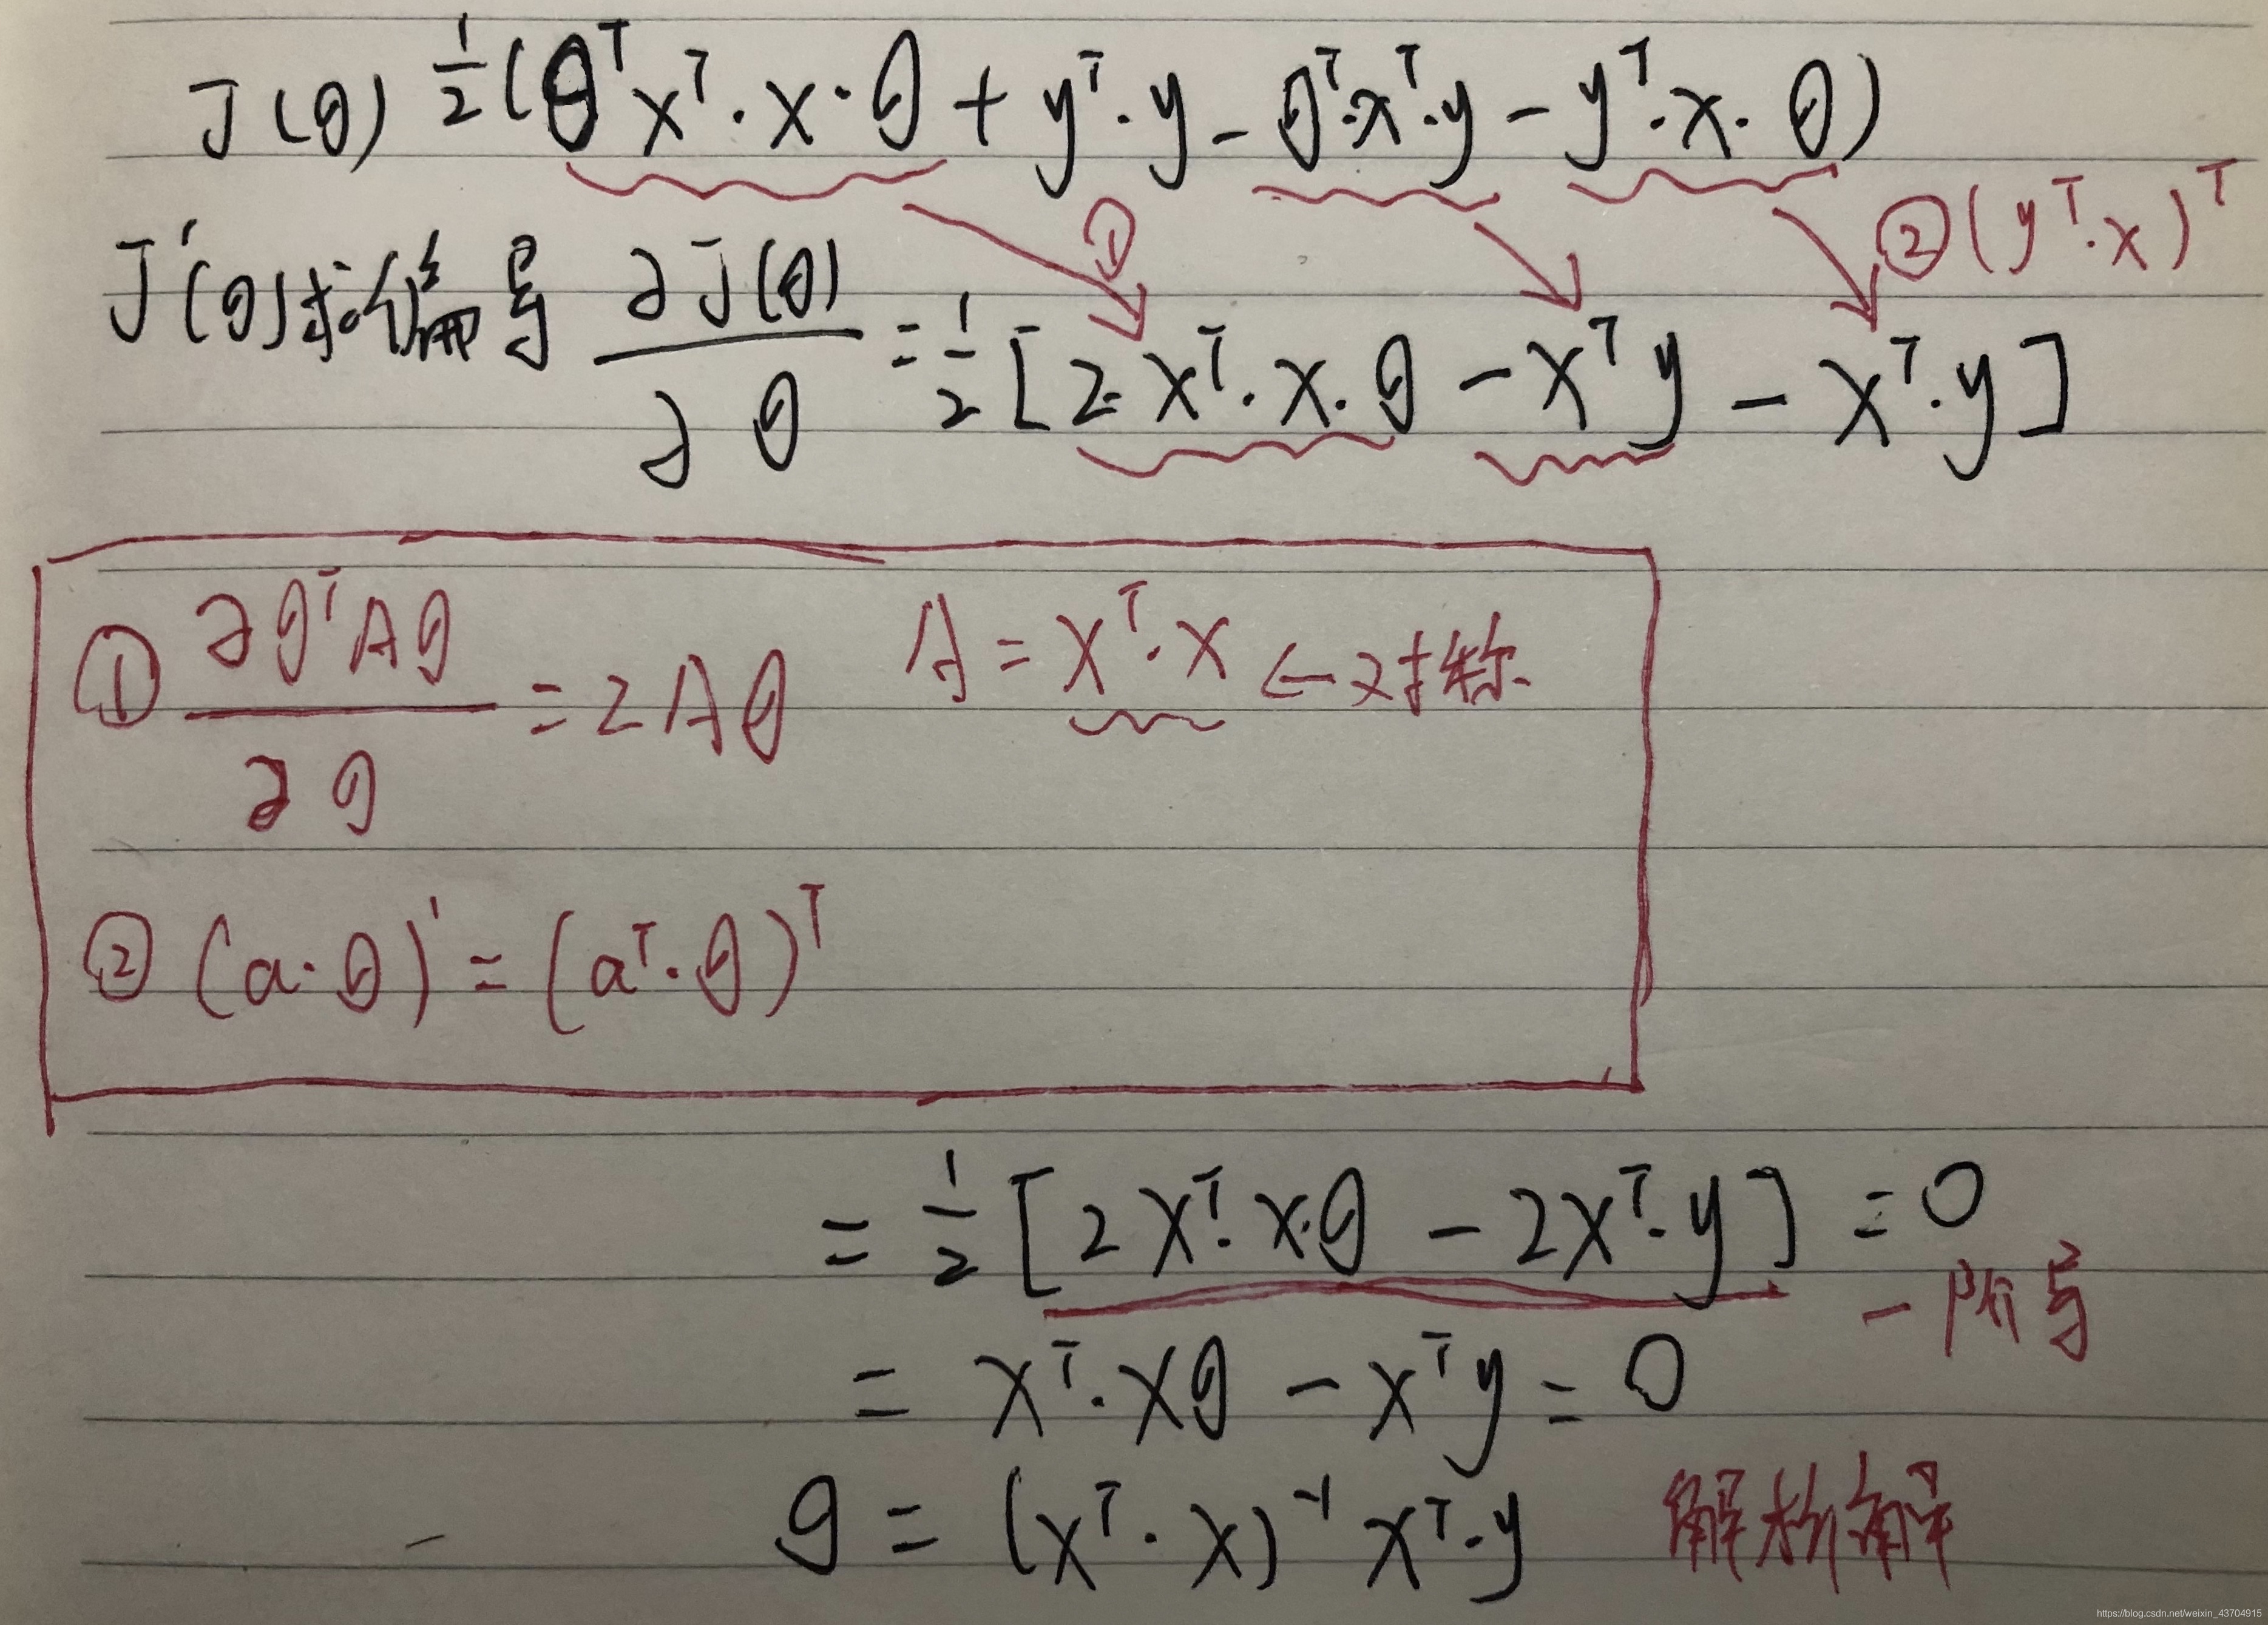 J(θ) 1/2(θᵀxᵀ·x·θ + yᵀ·y - θᵀ·xᵀ·y - yᵀ·x·θ)
① ②(yᵀ·x)ᵀ
J'(θ)求偏导 ∂J(θ)/∂θ = 1/2[2·xᵀ·x·θ - xᵀy - xᵀ·y]
① ∂θᵀAθ/∂θ = 2Aθ A = xᵀ·x ← 对称
② (a·θ)' = (aᵀ·θ)ᵀ
= 1/2[2xᵀ·x·θ - 2xᵀ·y] = 0
一阶导
= xᵀ·xθ - xᵀy = 0
θ = (xᵀ·x)⁻¹xᵀ·y 解析解
https://blog.csdn.net/weixin_43704915